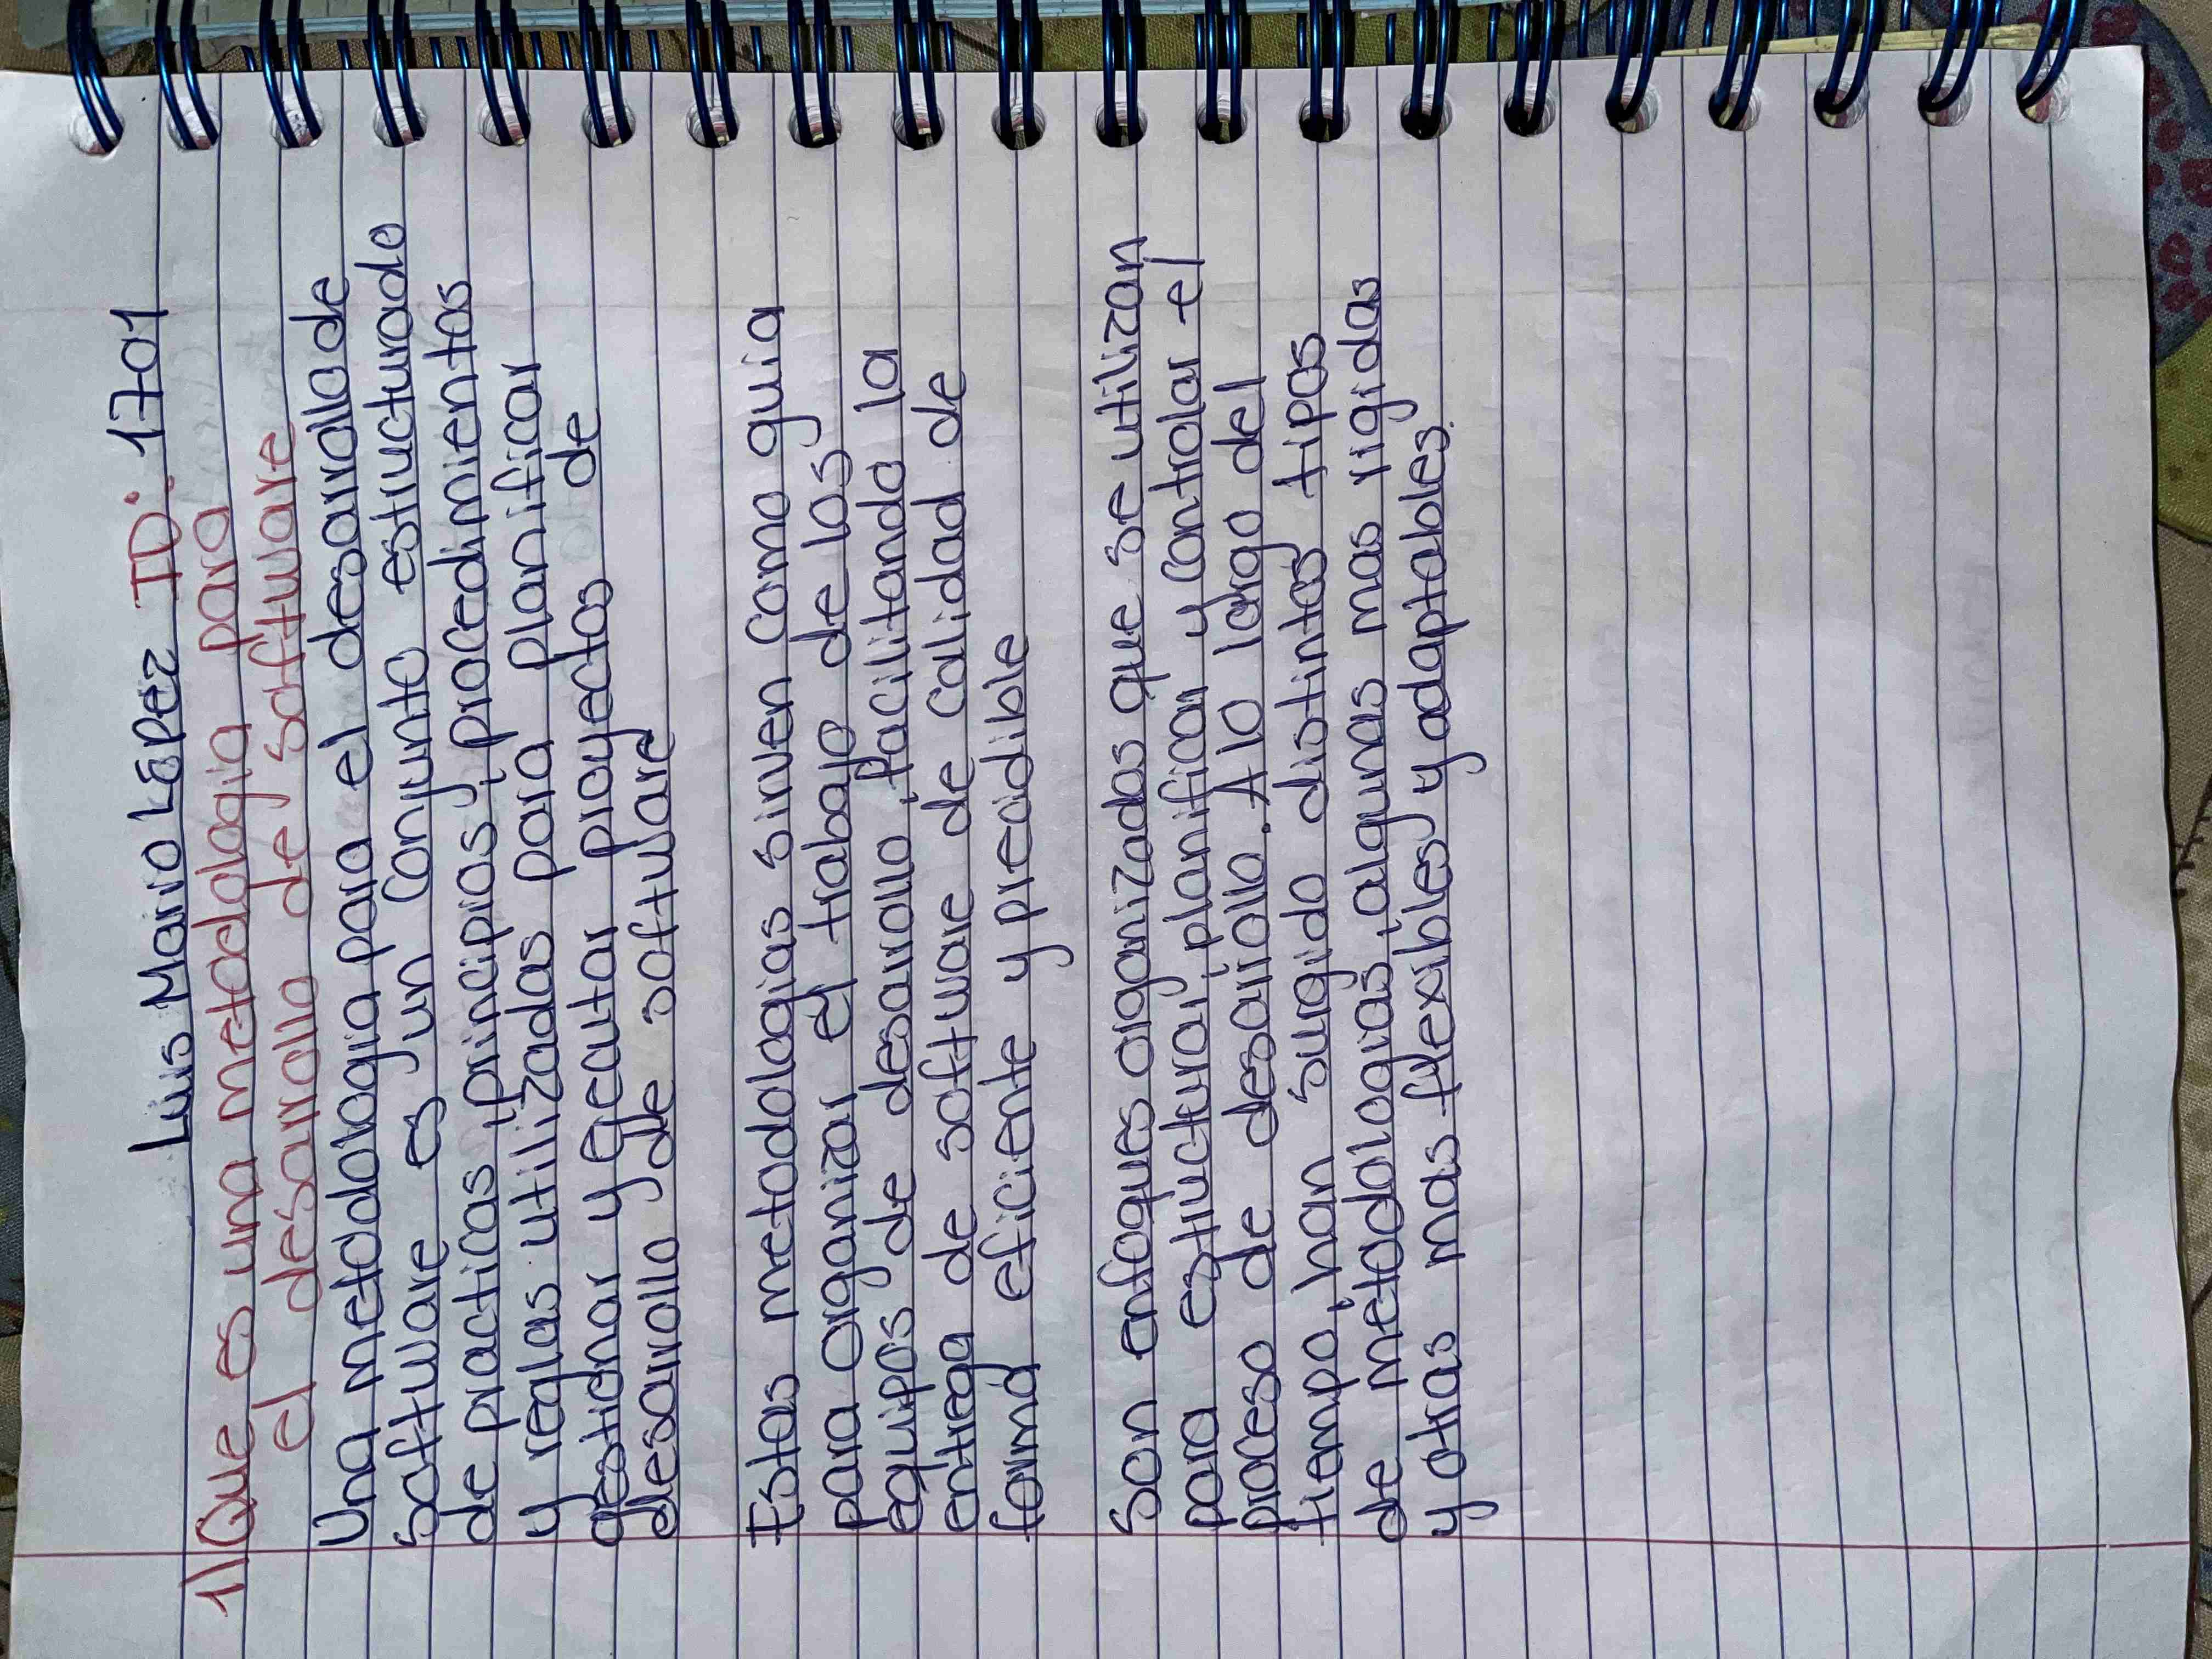 Luis Mario López ID: 1701
1) Que es una metodologia para
el desarrollo de software
Una metodologia para el desarrollo de
software es un conjunto estructurado
de practicas, principios, procedimientos
y reglas utilizadas para planificar
gestionar y ejecutar proyectos de
desarrollo de software
Estas metodologias sirven como guia
para organizar el trabajo de los
equipos de desarrollo, facilitando la
entrega de software de calidad de
forma eficiente y predecible
Son enfoques organizados que se utilizan
para estructurar, planificar y controlar el
proceso de desarrollo. A lo largo del
tiempo, han surgido distintos tipos
de metodologias, algunas mas rigidas
y otras mas flexibles y adaptables.